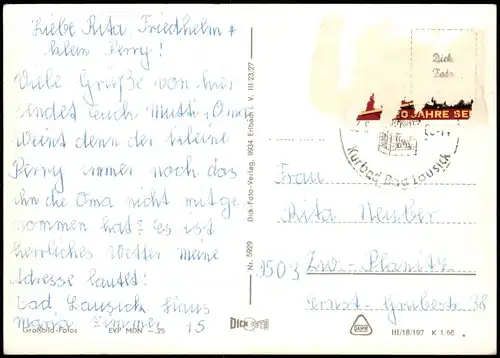 Liebe Rita Friedhelm +
klein Perry!
Viele Grüße von hier
sendet Euch Mutti, Oma
Weint denn der kleine
Perry immer noch das
ihn die Oma nicht mitge
nommen hat? Es ist
herrliches Wetter meine
Adresse lautet:
Bad Lausick Haus
Maria Zimmer 15
Großbild-Fotos EVP MDN —,25
Dick-Foto-Verlag, 9934 Erlbach i. V. III 23,27
Nr. 5929
DICK FOTO
Dick
Foto
0 JAHRE SE
Kurbad Bad Lausick
Frau
Rita Neuber
9503 Zw.-Planitz
Ernst-Grubestr. 38
III/18/197 K 1/66